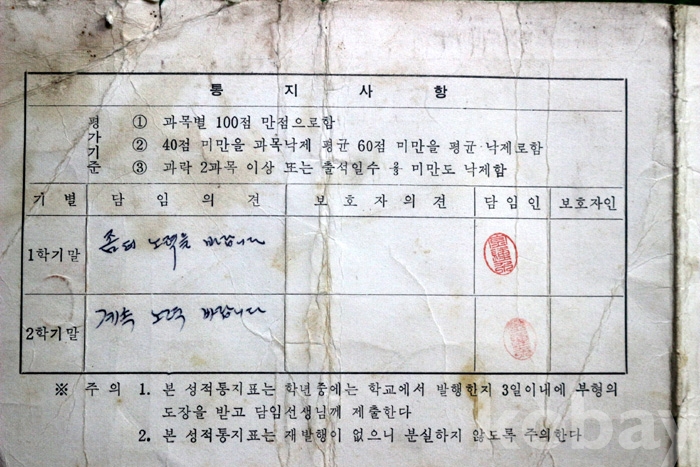 통지사항
평가기준 ① 과목별 100점 만점으로함
② 40점 미만을 과목낙제 평균 60점 미만을 평균 낙제로함
③ 과락 2과목 이상 또는 출석일수 미만도 낙제함
기별 담임의견 보호자의견 담임인 보호자인
1학기말 좀더 노력을 바랍니다
2학기말 계속 노력 바랍니다
※ 주의 1. 본 성적통지표는 학년중에는 학교에서 발행한지 3일이내에 부형의
도장을 받고 담임선생님께 제출한다
2. 본 성적통지표는 재발행이 없으니 분실하지 않도록 주의한다
kobay